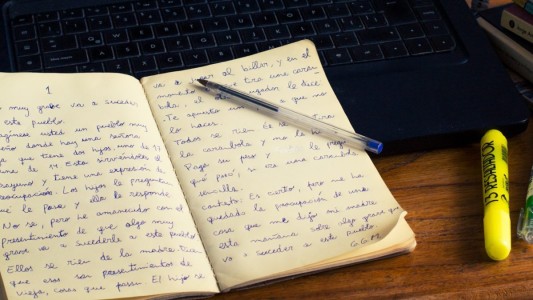 1
muy grave va a suceder
este pueblo
usted un pueblo muy
donde hay una señora
que tiene dos hijos, uno de 17
una de 14. Está sirviéndoles el
y tiene una expresión de
preocupación. Los hijos le preguntan
qué le pasa y ella le responde:
No sé, pero he amanecido con el
Presentimiento de que algo muy
grave va a sucederle a este pueblo
Ellos se ríen de la madre. Dicen
que esos son presentimientos de
vieja, cosas que pasan. El hijo se
va a jugar al billar, y en el
momento
tira una
el otro jugador le dice:
Te apuesto un a que no
lo haces.
Todos se ríen. Él se
la carambola y no la
Paga su peso y le
qué pasó, si era una carambola
sencilla.
Contesta: Es cierto, pero me ha
quedado la preocupación de una
cosa que me dijo mi madre
esta mañana sobre algo grave que
va a suceder a este pueblo.
G.G.M
RESALTADOR